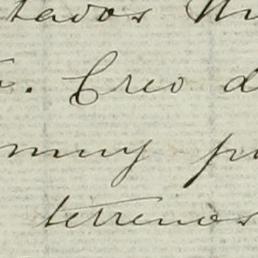 tados
. Creo d
muy p
terrenos